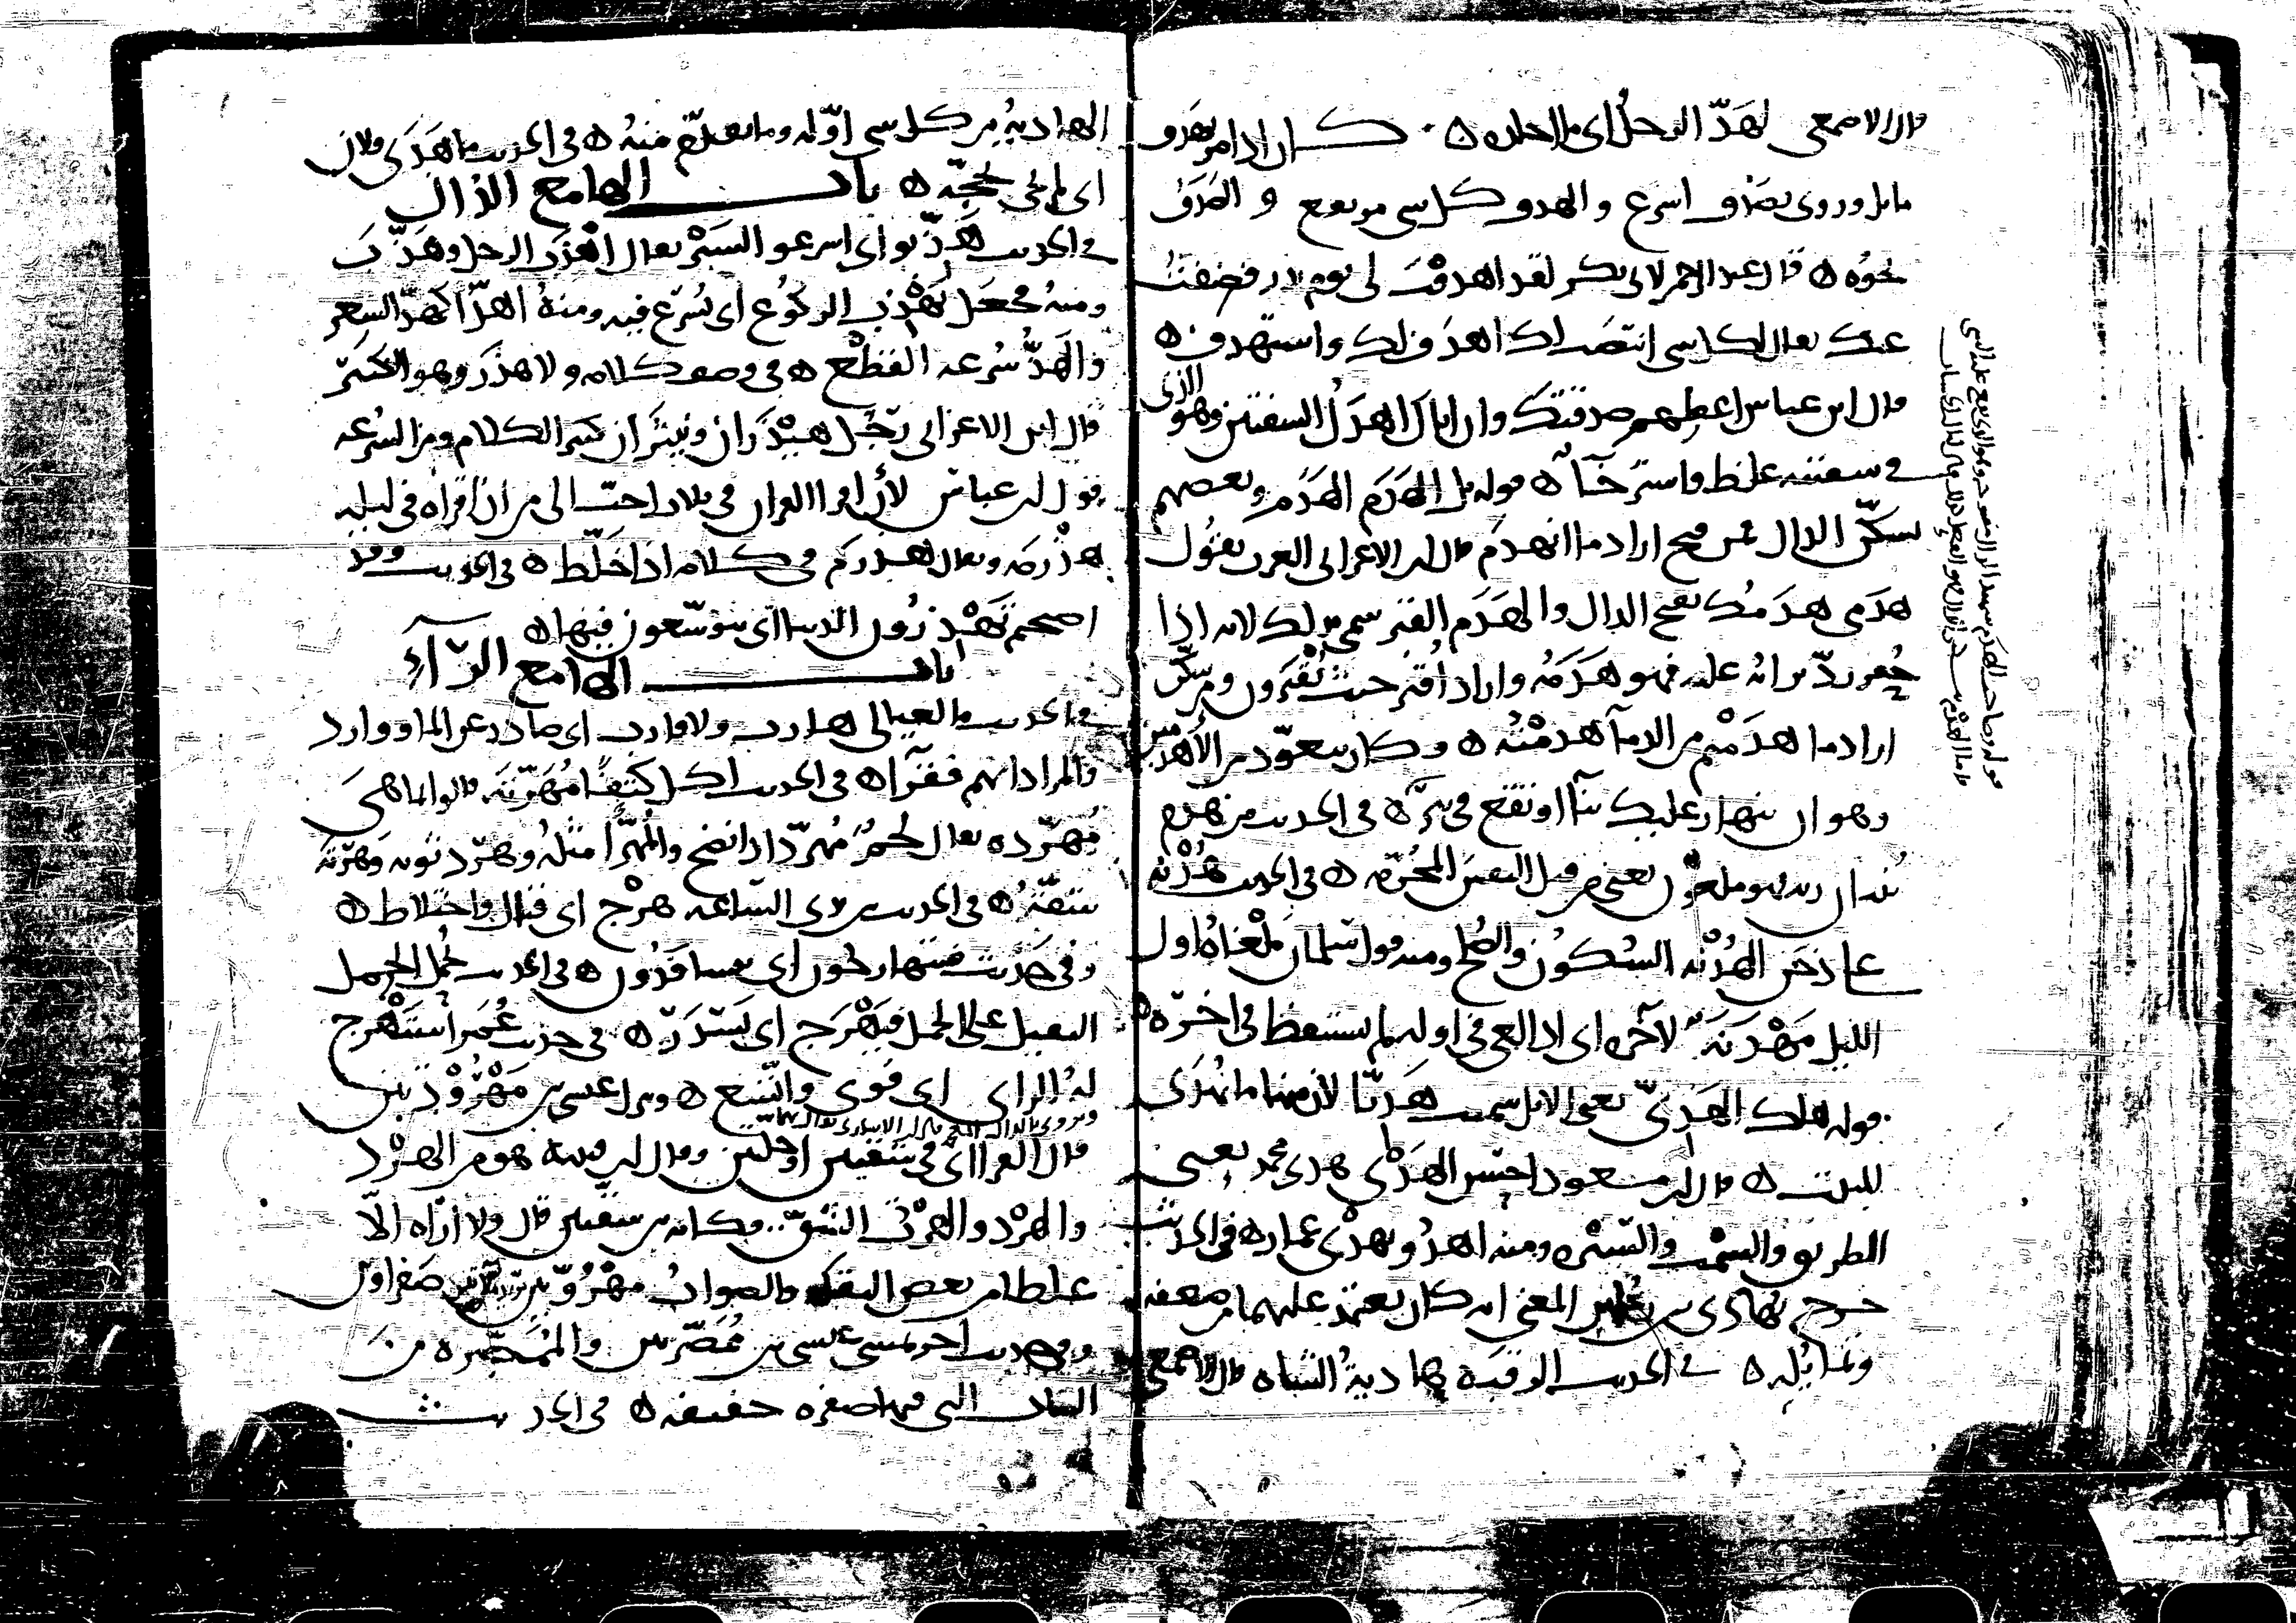 قال الاصمعي لهدّ الرجل اي ما اجلده ه كان اذا مر بهدف
مائل وروي بصدف اسرع والهدف كل شي مرتفع والصدف
نحوه ه قال عبد الرحمن لابي بكر لقد اهدفت لي يوم بدر فضفت
عنك يقال لكل شي انتصب لك اهدف لك واستهدف ه
قال ابن عباس اعطهم صدقتك وان اتاك اهدل الشفتين وهو الذي
في شفتيه غلظ واسترخآ ه قوله بل الهدم الهدم وبعضهم
يسكّن الدال فمن فتح اراد ما انهدم قال ابن الاعرابي العرب تقول
هدمي هدمك بفتح الدال والهدم القبر سمي بذلك لانه اذا
حفر ردّ ترابه عليه فهو هدمه واراد اقبر حيث تقبرون ومن سكّن
اراد ما هدمتم من الدما هدمته ه وكان يتعوّذ من الأهدمين
وهو ان ينهار عليك بنآ او تقع في بئر ه في الحديث من هدم
بنيان ربه فهو ملعون يعني من قتل النفس المحرّمه ه في الحديث هدنه
على دخن الهدنه السكون والصلح ومنه قول سلمان ملغاه اول
الليل مهدنة لآخره اي اذا لغي في اوله لم يستيقظ في اخره ه
قوله هلك الهديّ يعني الابل سميت هديّا لأن منها ما يهدى
للبيت ه قال ابن مسعود احسن الهدي هدي محمد يعني
الطريق والسمت والسيره ومنه اهدوا بهدي عمار ه في الحديث
خرج يهادى بين رجلين المعنى انه كان يعتمد عليهما من ضعفه
وتمايله ه في الحديث الرقبة هادية الشاه قال الاصمعي
قوله وصاحب الهدم شهيد
الهادية من كل شي اوّله وما تقدّم منه ه في الحديث ما هدى فلان
اي لم يجي بحجّه ه باب الها مع الذال
في الحديث هذّبوا اي اسرعوا السير يقال اهذب الرجل وهذّب
ومنه فجعل يهذب الركوع اي يسرع فيه ومنه اهذّا كهذّ الشعر
والهذّ سرعه القطع ه في وصف كلامه ولا هذر وهو الكثير
قال ابن الاعرابي رجل هيذران ونيثران كثير الكلام ومن السرعه
قول ابن عباس لأن اقرا القران في ثلاث احبّ الي من ان اقراه في ليله
هذرمه ويقال هذرم في كلامه اذا خلّط ه في الحديث وقد
اصبحتم تهذرون الدنيا اي تتوسّعون فيها ه
باب الها مع الرّآء
في الحديث ما لعيالي هارب ولا قارب اي صادر عن الما ووارد
والمراد انهم فقرآ ه في الحديث اكل كتفا مهرّتة قالوا انما هي
مهرّده يقال لحم مهرّد اذا نضج والمهرّا مثله وهرّد ثوبه وهرّته
شقّه ه في الحديث بين يدي السّاعه هرج اي قتال واختلاط ه
وفي حديث فيتهارجون اي يتسافدون ه في الحديث حمل الحمل
الثقيل على الجمل فيهرج اي يسدر ه في حديث عمر استهرج
له الراي اي قوي واتّسع ه وينزل عيسى بين مهرودتين
ويروى بالدال والذال قال ابن الانباري
قال الفرا اي في شقتين او حلتين وقال ابن قتيبة هو من الهرد
والهرد والهرت الشق فكانه بين شقتين قال ولا اراه الّا
غلطا من بعض النقله والصواب مهروّتين يريد صفراوين
وفي حديث اخر يمشي عيسى بين ممصّرتين والممصّره من
الثياب التي فيها صفره خفيفه ه في الحديث